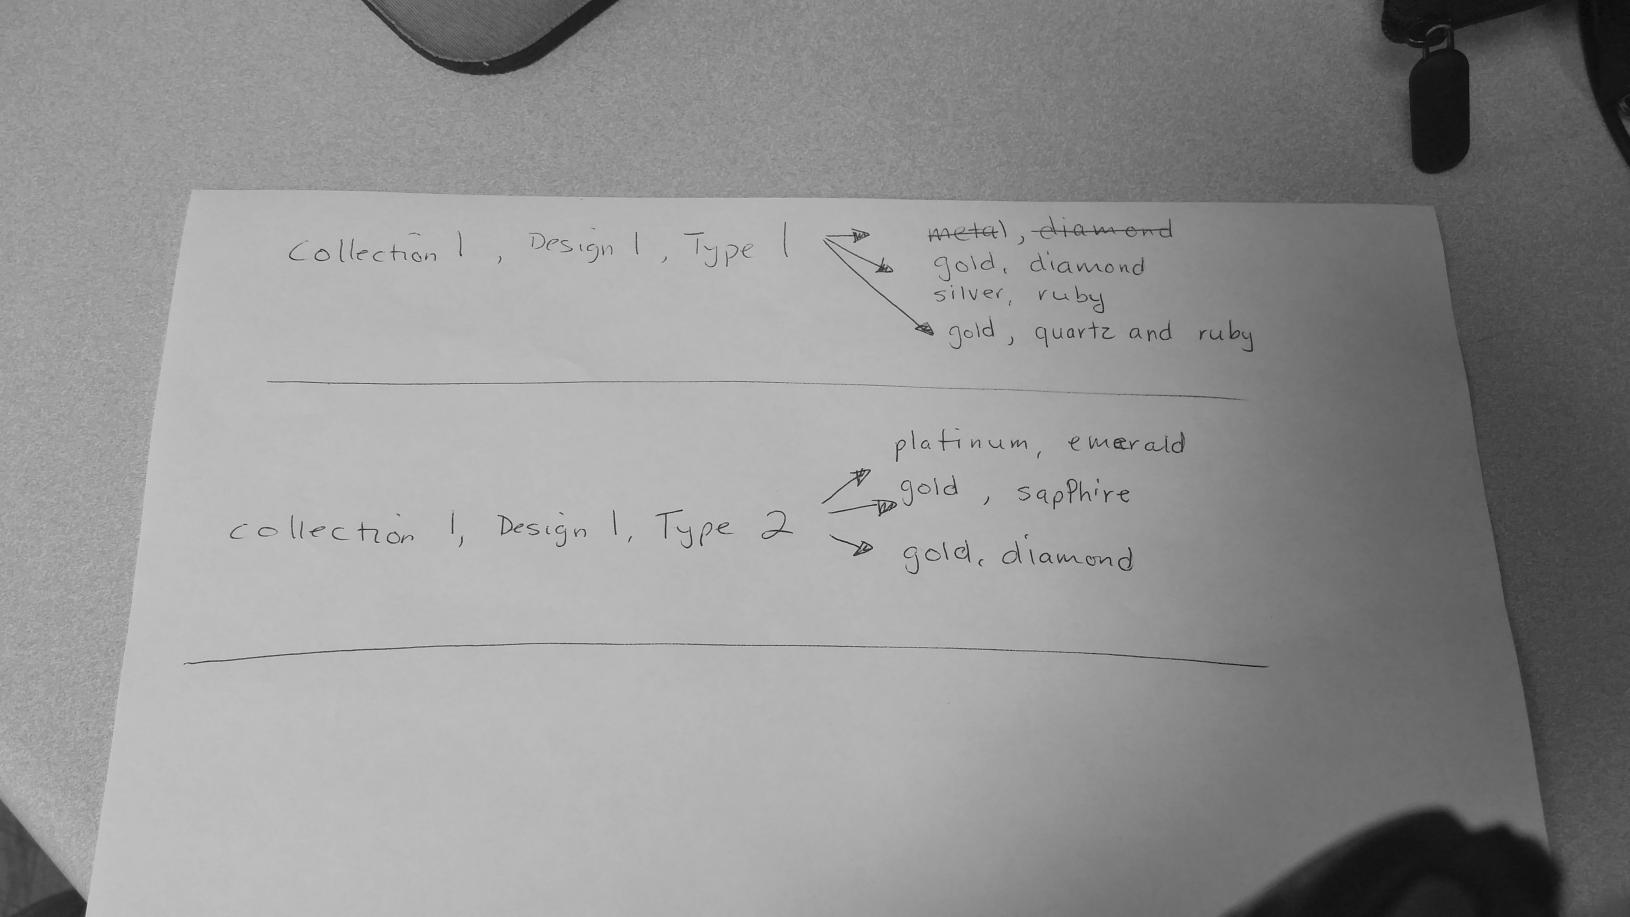 Collection 1, Design 1, Type 1
metal, diamond
gold, diamond
silver, ruby
gold, quartz and ruby
platinum, emerald
gold, sapphire
collection 1, Design 1, Type 2
gold, diamond